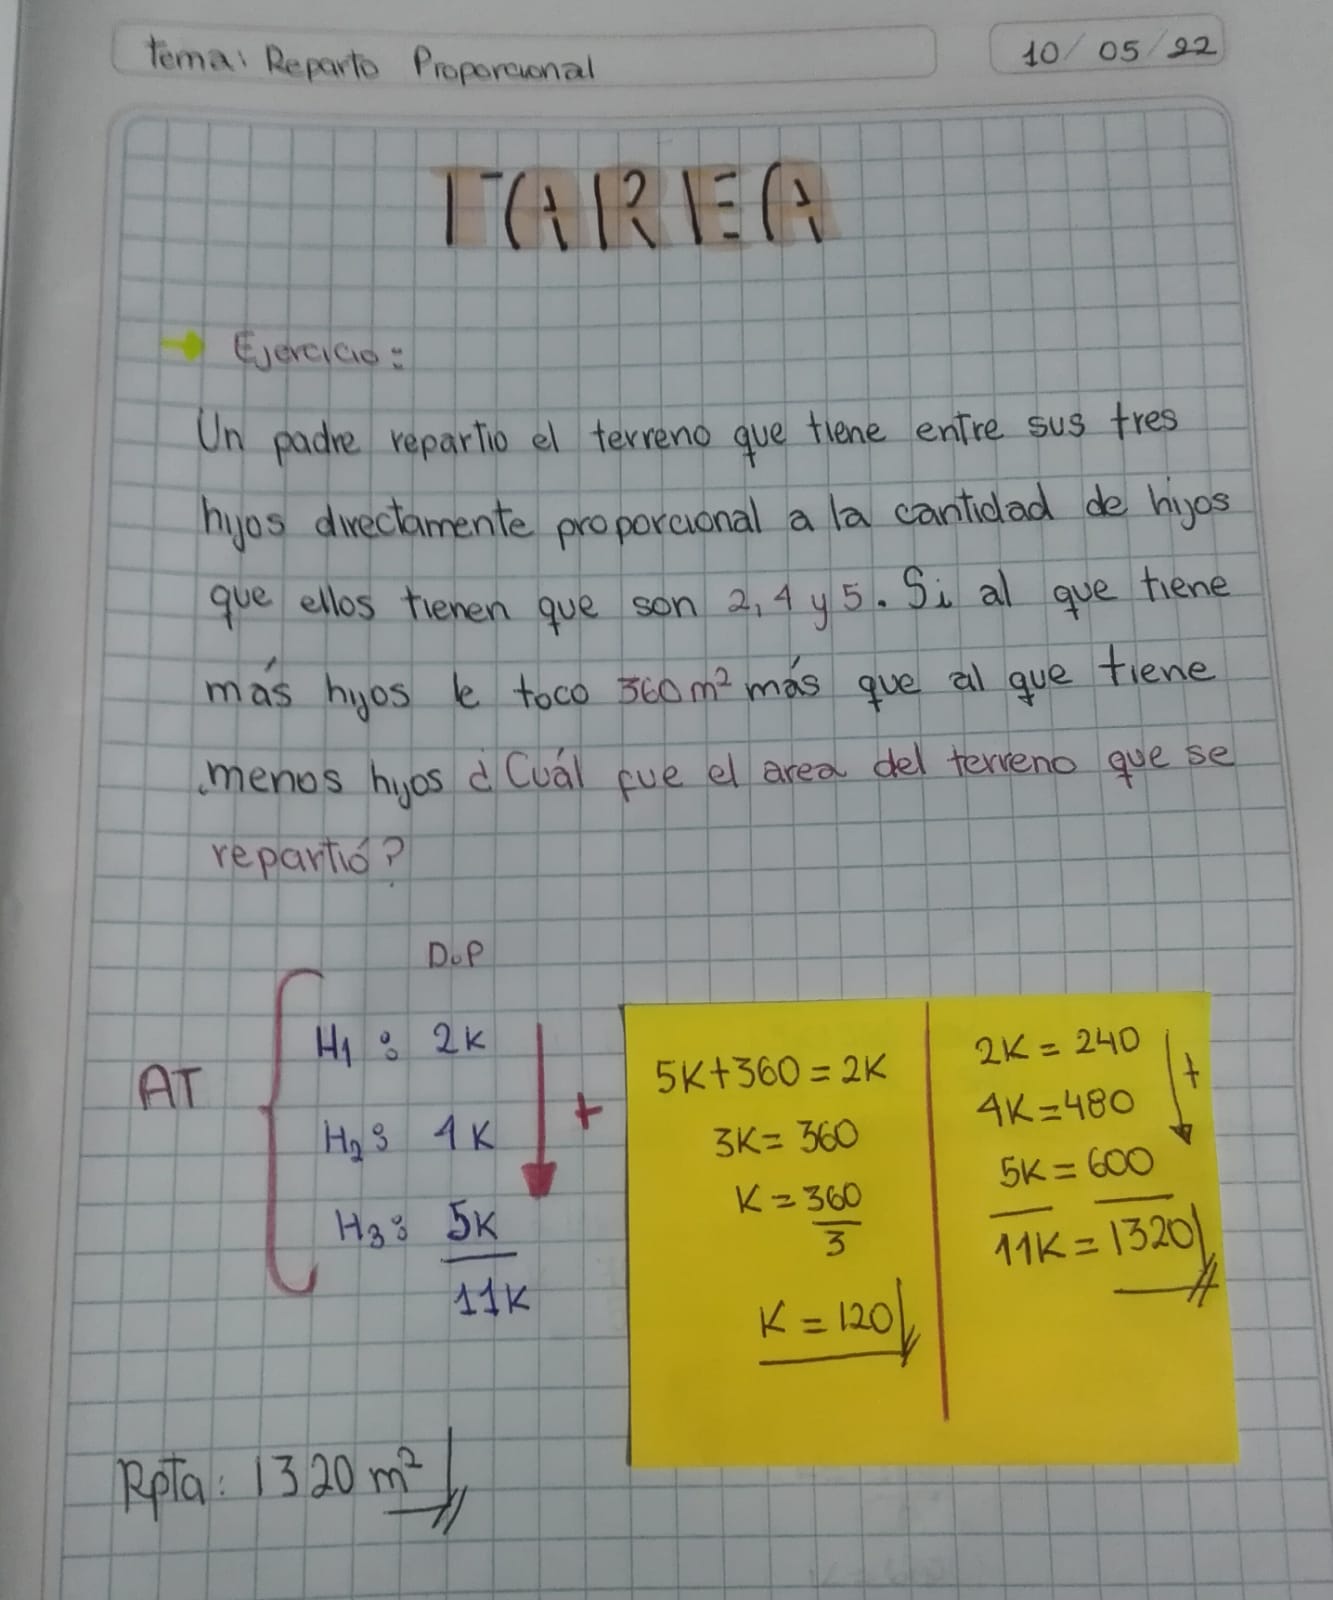 Tema: Reparto Proporcional
10/05/22
TAREA
→ Ejercicio:
Un padre repartio el terreno que tiene entre sus tres
hijos directamente proporcional a la cantidad de hijos
que ellos tienen que son 2, 4 y 5. Si al que tiene
más hijos le toco 360 m² más que al que tiene
menos hijos ¿Cuál fue el area del terreno que se
repartió?
D.P
AT
H₁: 2K
H₂: 4K
H₃: 5K
11K
+
5K+360=2K
3K=360
K=360
3
K=120
2K=240
4K=480
5K=600
11K=1320
+
Rpta: 1320 m²